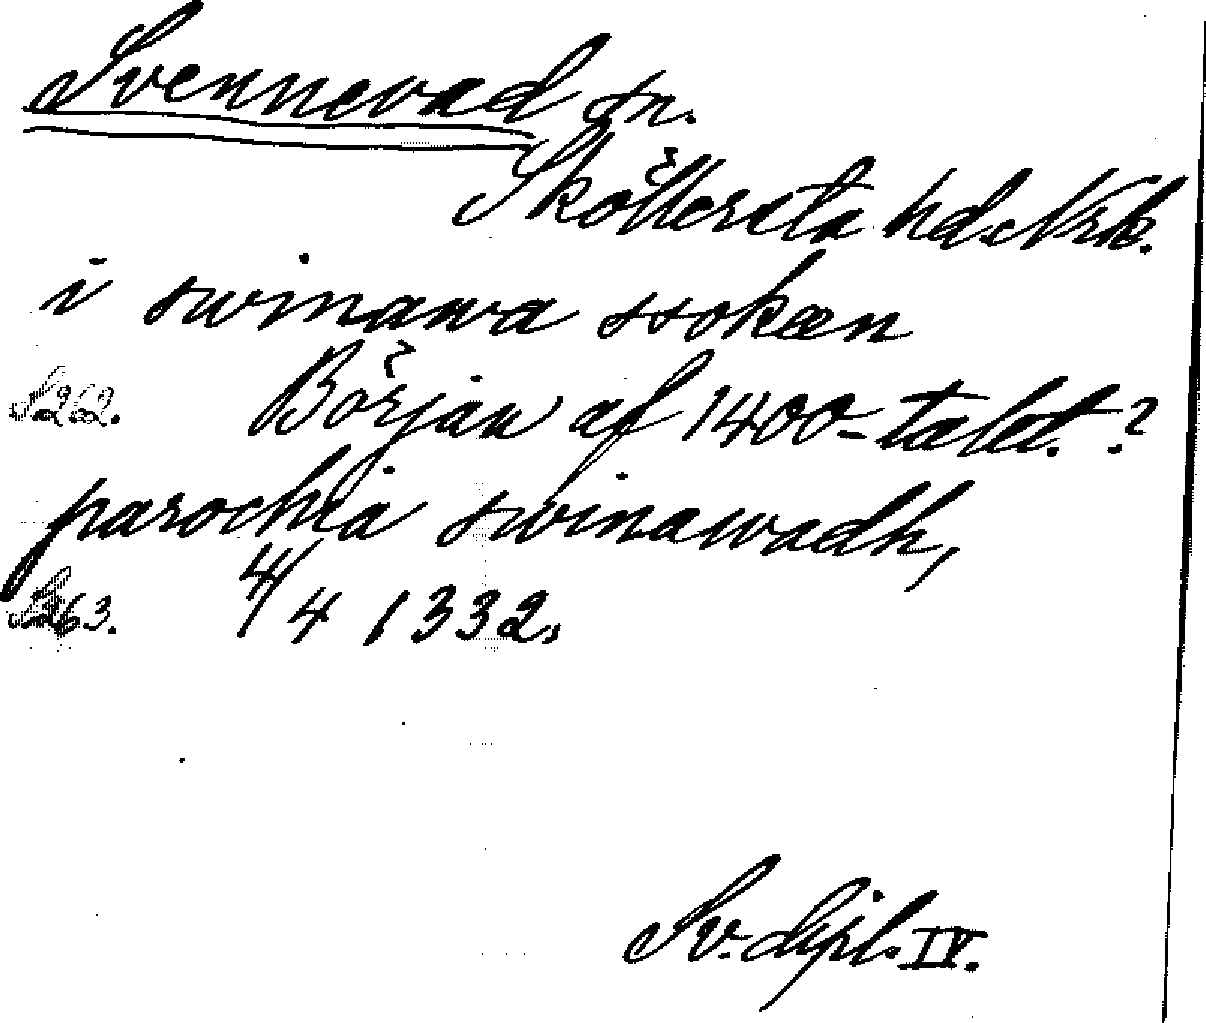 Svennevad sn.
Sköllersta hd. Nrk.
i swinawa ssokæn
S 262. Början af 1400-talet.?
parochia swinawadh,
S 263. 4/4 1332.
Sv. dipl. IV.